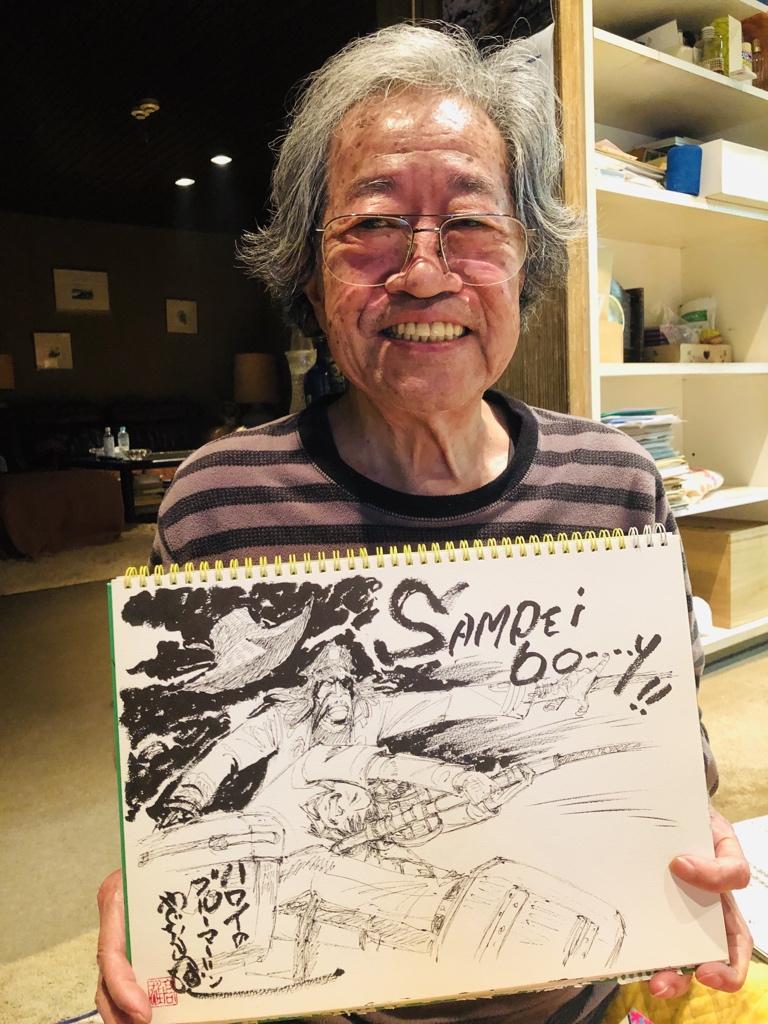 SAMPEi
bo....y!!
ハロイの
ブルーマーリン